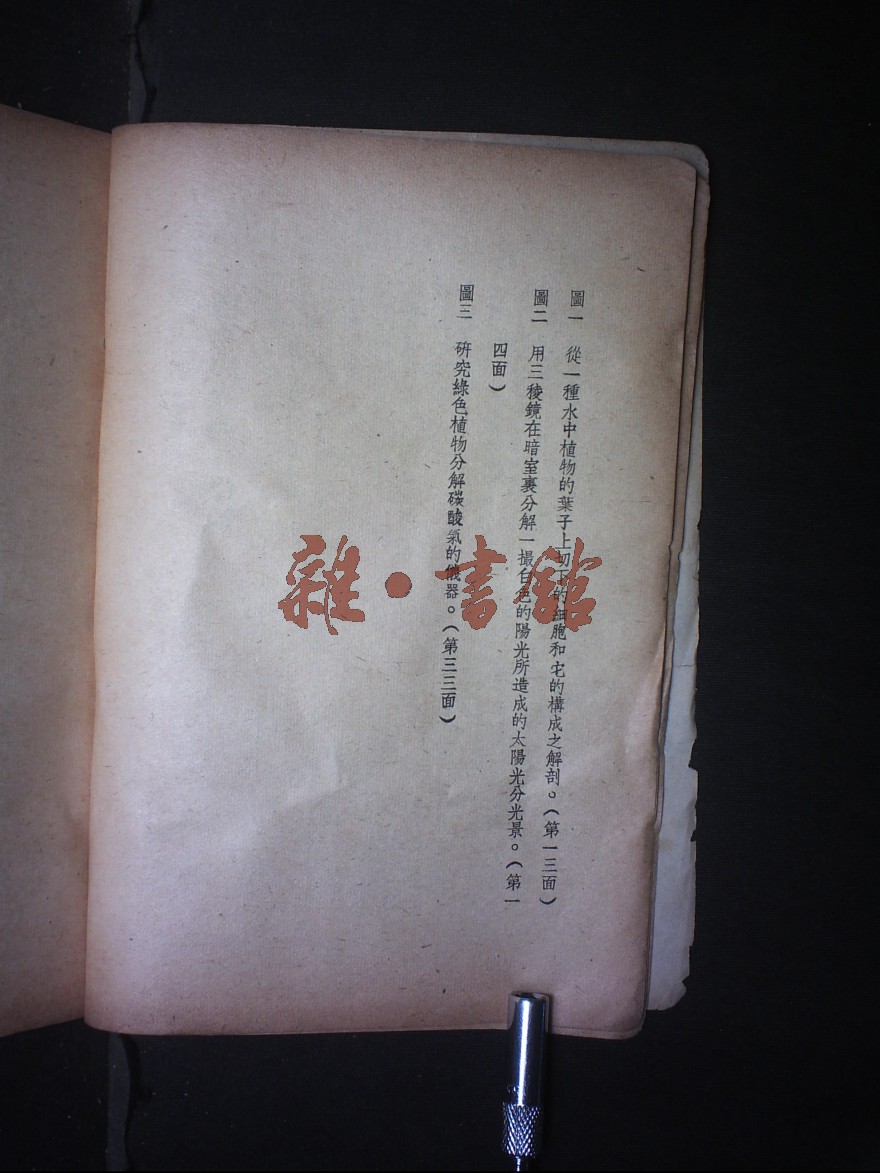 圖一　從一種水中植物的葉子上切下的細胞和它的構成之解剖。(第一三面)
圖二　用三稜鏡在暗室裏分解一撮白色的陽光所造成的太陽光分光景。(第一
四面)
圖三　研究綠色植物分解碳酸氣的儀器。(第三三面)
雜·書館